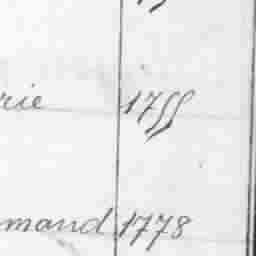 rie 1755
mand 1778